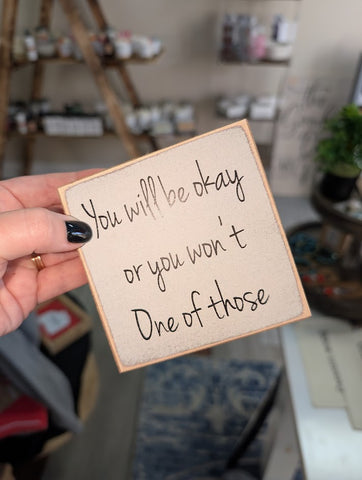 You will be okay
or you won't
One of those